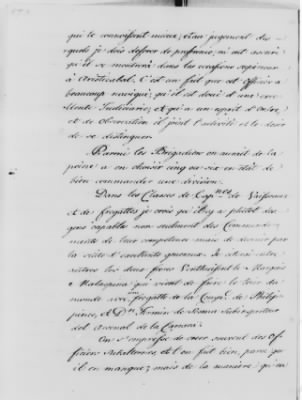 qui le connoissent mieux, et au jugement des
quels je dois deferer de preference, m'ont assuré
qu'il se montrera dans les occasions superieur
à Aristizabal. C'est un fait que cet officier a
beaucoup navigué; qu'il est doué d'une
Judiciaire; et qu'à un esprit d'ordre
et de observation il joint l'activité et le desir
de se distinguer.
Parmi les Brigadiers on auroit de la
peine à en choisir cinq ou six en état de
bien commander une division.
Dans les Classes de Cap.nes de Vaisseaux
et de fregattes je crois qu'il y a plutot des
gens capables non seulement des Commande
ments de leur competence mais de devenir par
la suite d'excellents generaux. Je citerai entre
autres les deux freres le Marquis
Malaspina qui vient de faire le tour du
monde avec une fregatte de la Comp.e de Philip
pines, et Dn. Fermin de Sesma Subinspecteur
del Arsenal de la Carraca.
On s'empresse de créer souvent des Of
ficiers Subalternes et l'on fait bien, parce que
il en manque; mais de la maniere qu'on